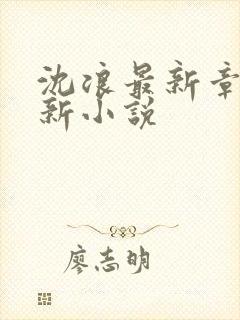 沈浪最新章
新小說
廖志明